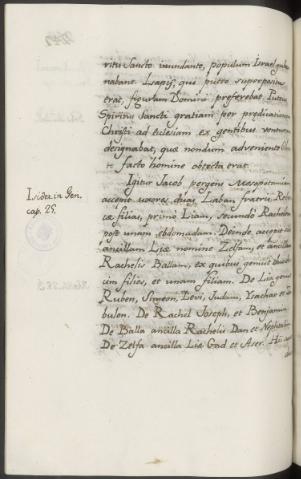 ritu Sancto inundante, populum Israel guber
nabant. Lapis, qui puteo superpositus
erat, figuram Domini preferebat. Puteus
Spiritus Sancti gratiam per predicationem
Christi ad Eclesiam ex gentibus venturam
designabat, quæ nondum adveniente
facto homine obtecta erat.
Isidor. in Gen.
cap. 25.
Igitur Jacob pergens Mesopotamiam
accepit uxores duas, Laban fratris Rebec
cæ filias, primo Liam, secundo Rachelem
post unam ebdomadam. Deinde accepit
ancillam Liæ nomine Zelfam, et ancillam
Rachelis Ballam, ex quibus genuit duode
cim filios, et unam filiam. De Lia genuit
Ruben, Simeon, Levi, Judam, Ysachar et Za
bulon. De Rachel Joseph, et Benjamin.
De Balla ancilla Rachelis Dan et Nephtalim
De Zelfa ancilla Lia Gad et Aser. Hii